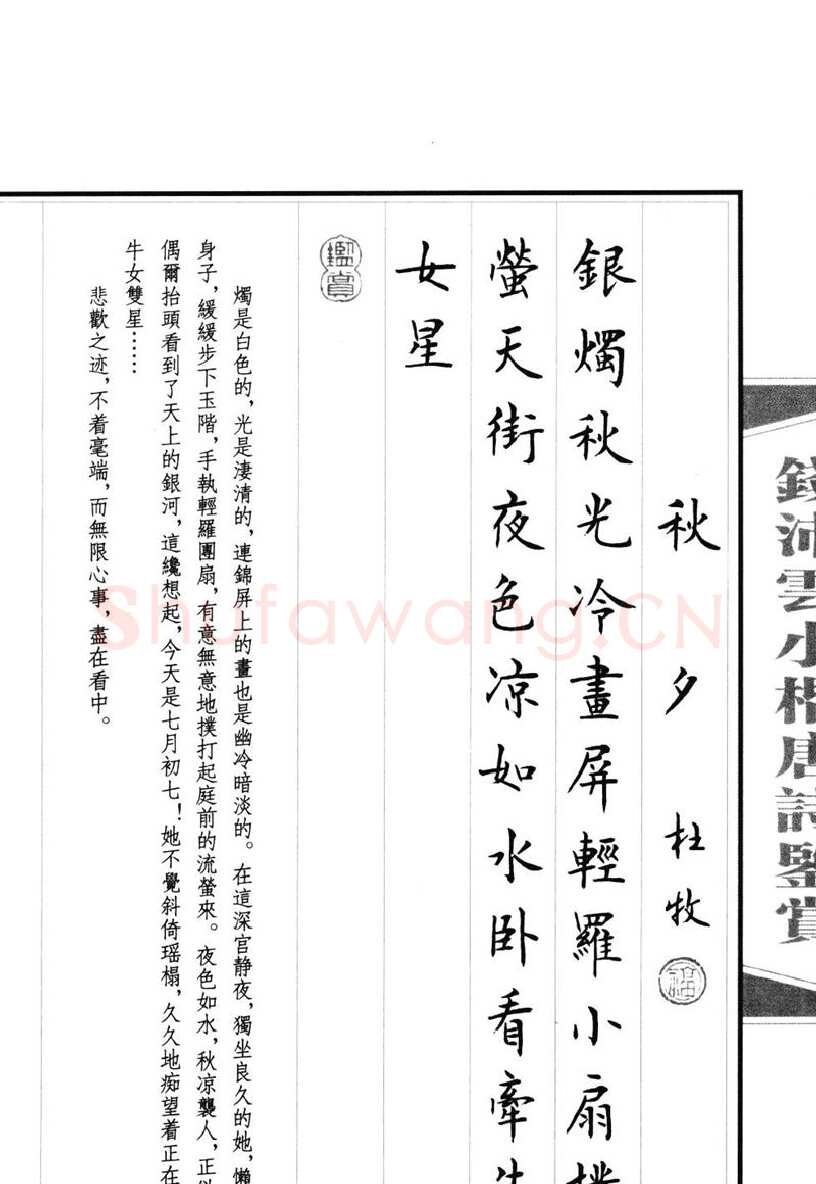 錢沛雲小楷唐詩鑒賞
秋夕 杜牧
福
銀燭秋光冷畫屏輕羅小扇撲
螢天街夜色凉如水卧看牽牛
女星
鑑賞
燭是白色的，光是淒清的，連錦屏上的畫也是幽冷暗淡的。在這深宫静夜，獨坐良久的她，懶
身子，緩緩步下玉階，手執輕羅團扇，有意無意地撲打起庭前的流螢來。夜色如水，秋凉襲人，正
偶爾抬頭看到了天上的銀河，這纔想起，今天是七月初七！她不覺斜倚瑶榻，久久地痴望着正在
牛女雙星……
悲歡之迹，不着毫端，而無限心事，盡在看中。
Shufawang.CN